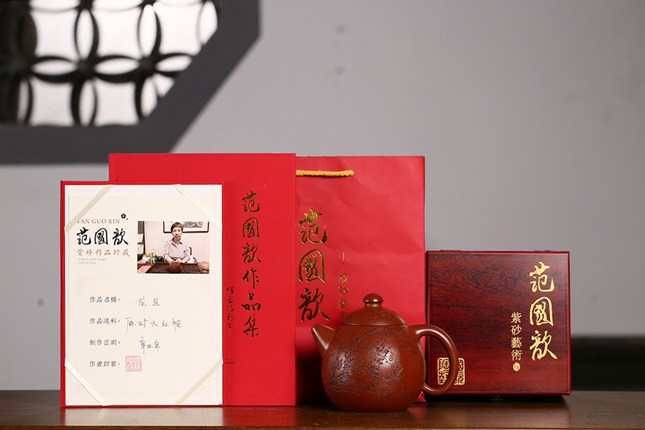 FAN GUO XIN
范國歆
紫砂作品珍藏
作品名稱：龙旦
作品泥料：原矿大红袍
制作日期：辛丑年
作者印鉴：
范國歆作品集
范國歆
范國歆
紫砂藝術